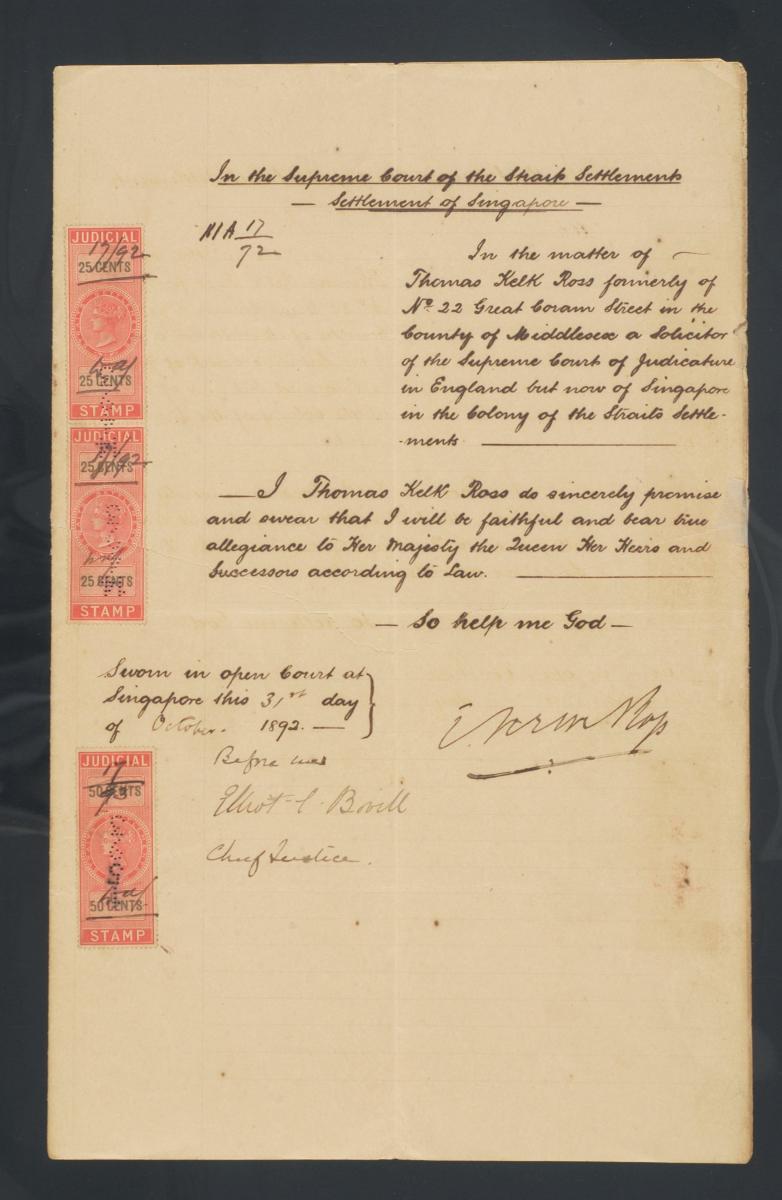 In the Supreme Court of the Straits Settlements
— Settlement of Singapore —
17
72
In the matter of
Thomas Kelk Ross formerly of
No. 22 Great Coram Street in the
County of Middlesex a Solicitor
of the Supreme Court of Judicature
in England but now of Singapore
in the Colony of the Straits Settle-
-ments
— I Thomas Kelk Ross do sincerely promise
and swear that I will be faithful and bear true
allegiance to Her Majesty the Queen Her Heirs and
Successors according to Law.
— So help me God —
Sworn in open Court at
Singapore this 31st day
of October. 1892. —
Before me
Elliot C. Bovill
Chief Justice.
JUDICIAL
17/92
25 CENTS
25 CENTS
STAMP
JUDICIAL
25 CENTS
25 CENTS
STAMP
JUDICIAL
50 CENTS
50 CENTS
STAMP